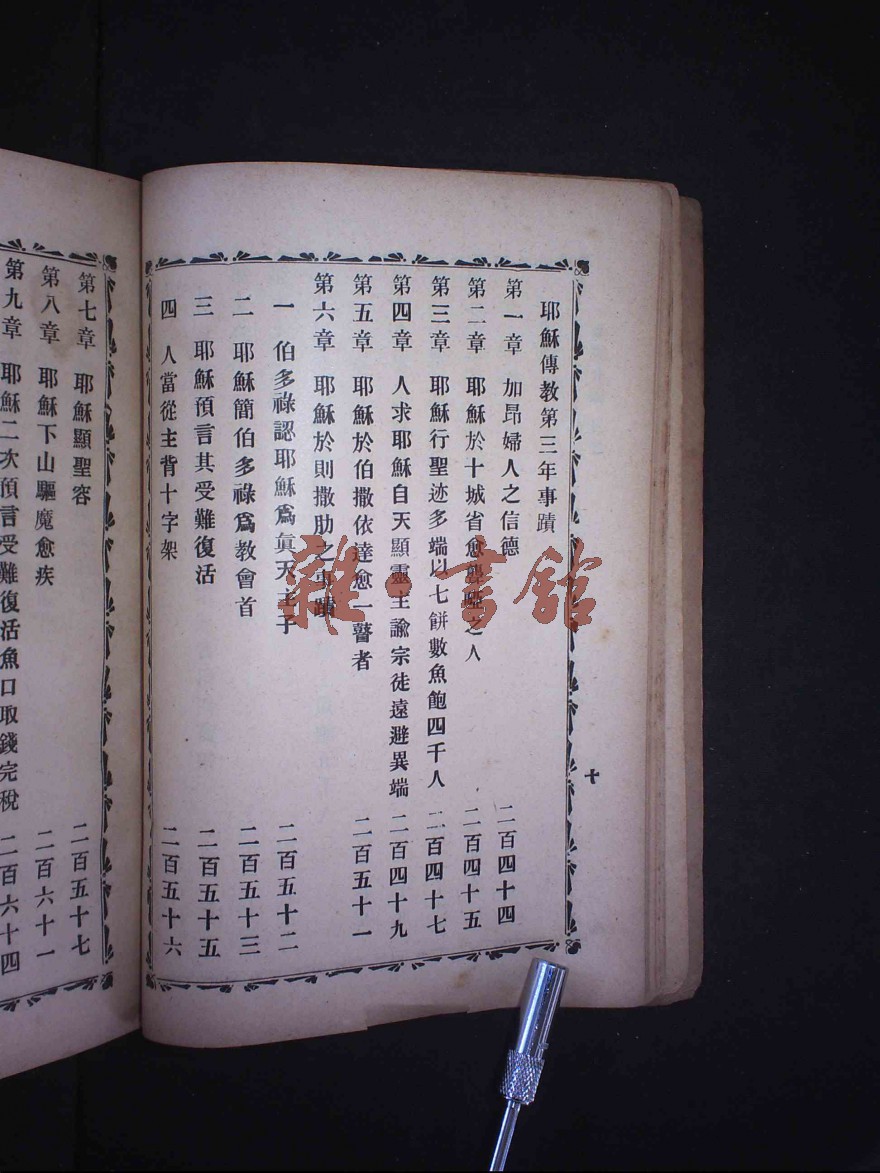 耶穌傳教第三年事蹟
第一章 加昂婦人之信德 二百四十四
第二章 耶穌於十城省愈聾啞之人 二百四十五
第三章 耶穌行聖迹多端以七餅數魚飽四千人 二百四十七
第四章 人求耶穌自天顯靈主諭宗徒遠避異端 二百四十九
第五章 耶穌於伯撒依達愈一瞽者 二百五十一
第六章 耶穌於則撒肋之事蹟
一 伯多祿認耶穌爲眞天主子 二百五十二
二 耶穌簡伯多祿爲教會首 二百五十三
三 耶穌預言其受難復活 二百五十五
四 人當從主背十字架 二百五十六
十
第七章 耶穌顯聖容 二百五十七
第八章 耶穌下山驅魔愈疾 二百六十一
第九章 耶穌二次預言受難復活魚口取錢完稅 二百六十四
雜·書館